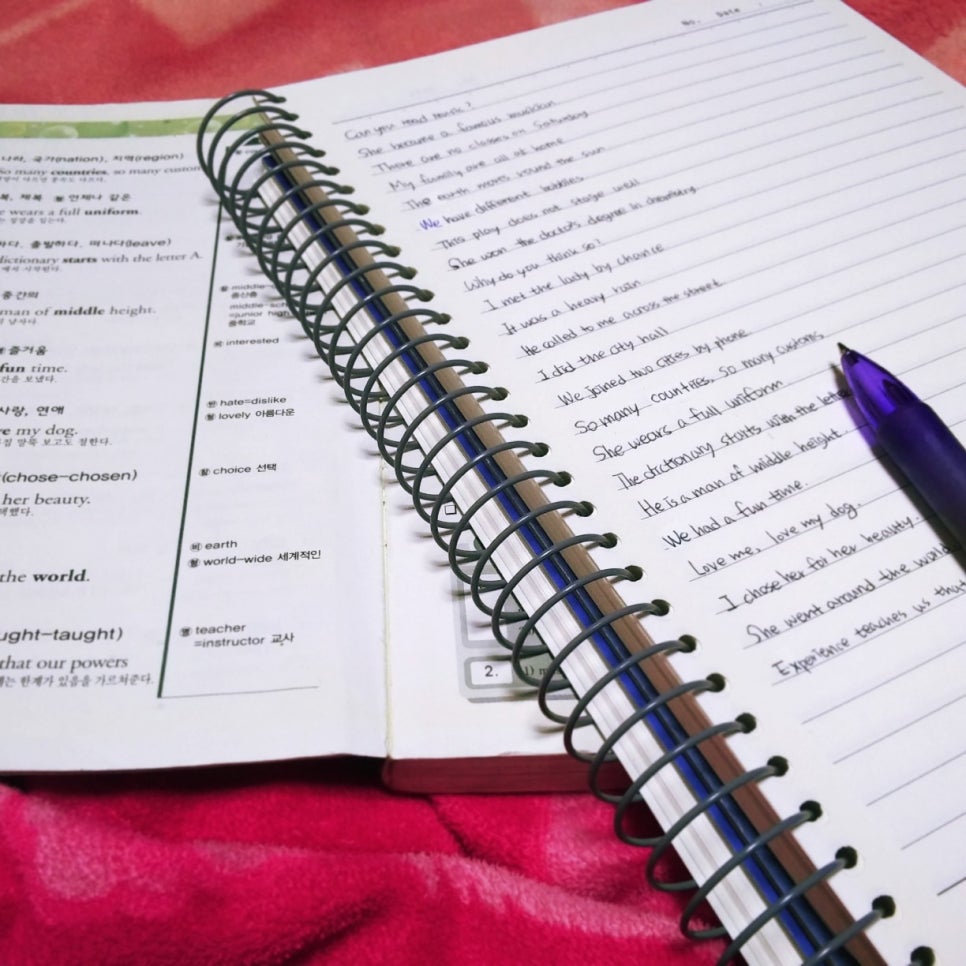 나라, 국가(nation), 지역(region)
So many countries, so many custom
복, 제복 언제나 같은
e wears a full uniform.
하다, 출발하다, 떠나다(leave)
dictionary starts with the letter A.
에서 시작된다.
중간의
man of middle height.
남자다.
즐거움
fun time.
간을 보냈다.
사랑, 연애
ve my dog.
집 말뚝 보고도 절한다.
(chose-chosen)
her beauty.
택했다.
the world.
ught-taught)
that our powers
는 한계가 있음을 가르쳐준다.
middle-
중산층
middle-sch
=junior high
중학교
interested
hate=dislike
lovely 아름다운
choice 선택
earth
world-wide 세계적인
teacher
=instructor 교사
2. 1) m
No. Date
Can you read music?
She became a famous musician
There are no classes on Saturday
My family are all at home
The earth moves round the sun
We have different hobbies
This play does not stage well
She won the doctor's degree in chemistry.
Why do you think so?
I met the lady by chance
It was a heavy rain
He called to me across the street
I did the city hall
We joined two cities by phone
So many countries, so many customs
She wears a full uniform
The dictionary starts with the lette
He is a man of middle height
We had a fun time.
Love me, love my dog.
I chose her for her beauty.
She went around the world
Experience teaches us that